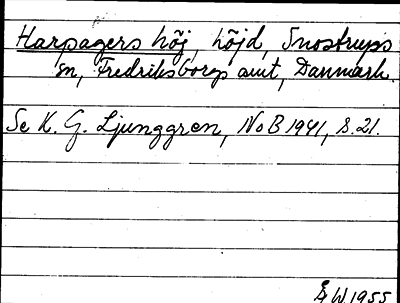 Harpagers höj, höjd, Snostrups
sn, Fredriksborgs amt, Danmark.
Se K. G. Ljunggren, NoB 1941, s. 21.
Å W. 1955